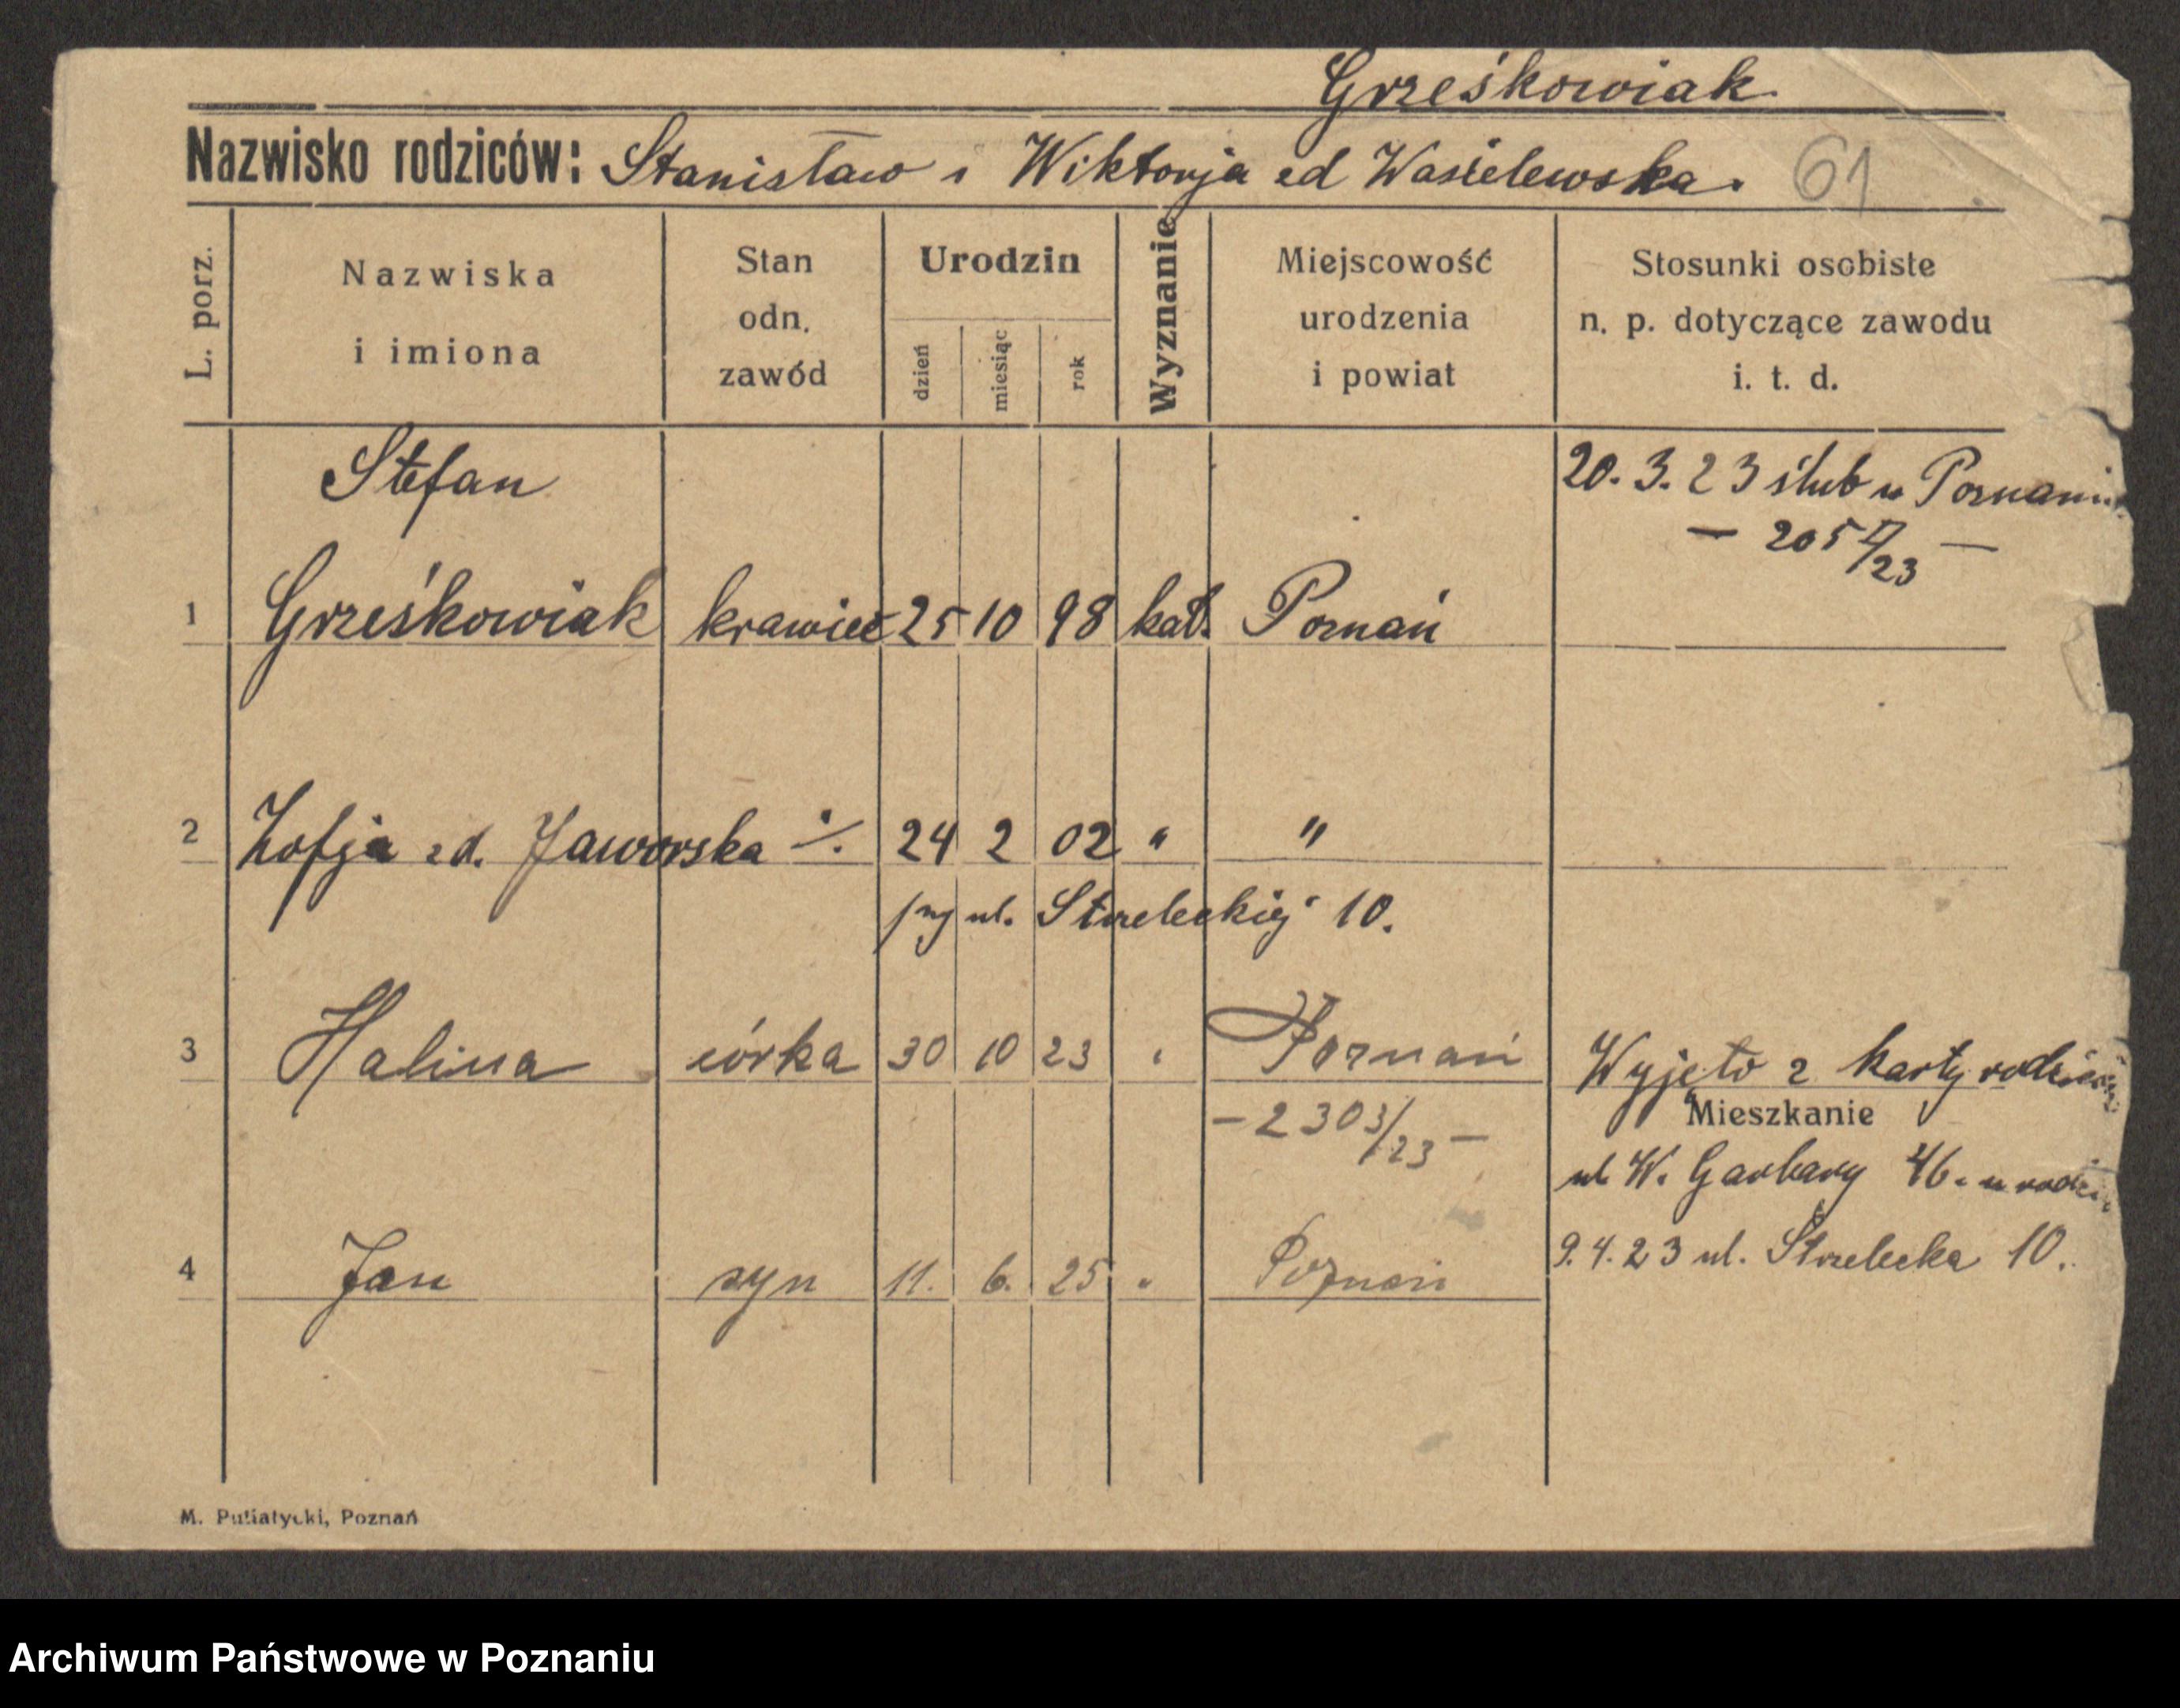 Grześkowiak
Nazwisko rodziców: Stanisław i Wiktorja zd Wasielewska.
61
L. porz.
Nazwiska
i imiona
Stan
odn.
zawód
Urodzin
dzień
miesiąc
rok
Wyznanie
Miejscowość
urodzenia
i powiat
Stosunki osobiste
n. p. dotyczące zawodu
i. t. d.
Stefan
20. 3. 23 ślub w Poznaniu
— 205 /23 —
1 Grześkowiak krawiec 25 10 98 kat. Poznań
2 Zofja zd. Jaworska ·/. 24 2 02 " "
przy ul. Strzeleckiej 10.
3 Halina córka 30 10 23 " Poznań
Wyjęto z karty rodziców
— 2303/23 —
Mieszkanie
ul W. Garbary 46. u rodz.
9. 4. 23 ul. Strzelecka 10.
4 Jan syn 11. 6. 25 " Poznań
M. Putiatycki, Poznań
Archiwum Państwowe w Poznaniu